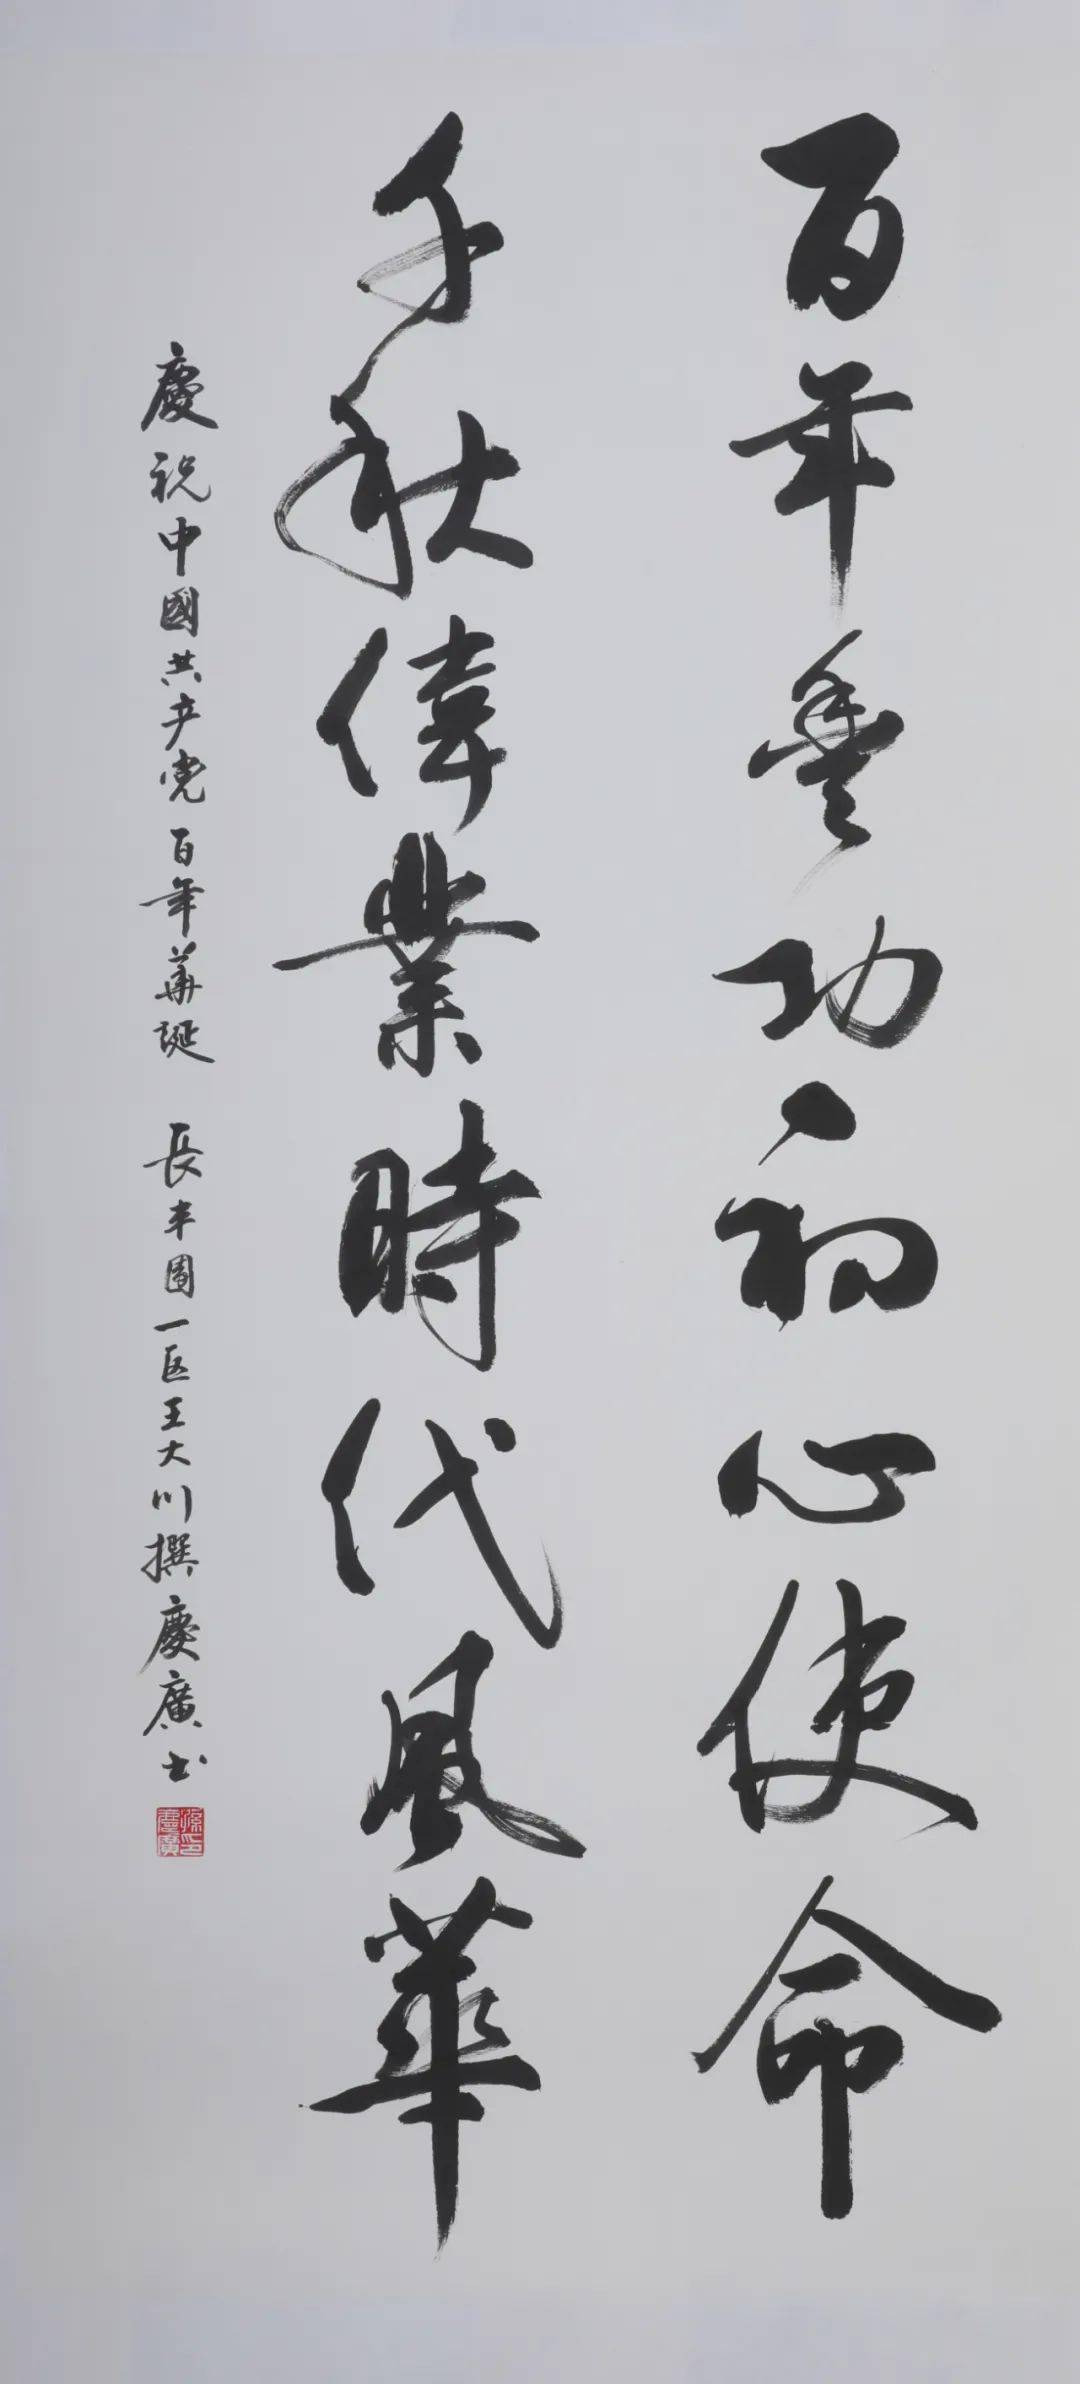 百年丰功初心使命
千秋偉業時代風華
慶祝中國共产党百年華誕 長丰園一区王大川撰慶廣书
孫慶廣印